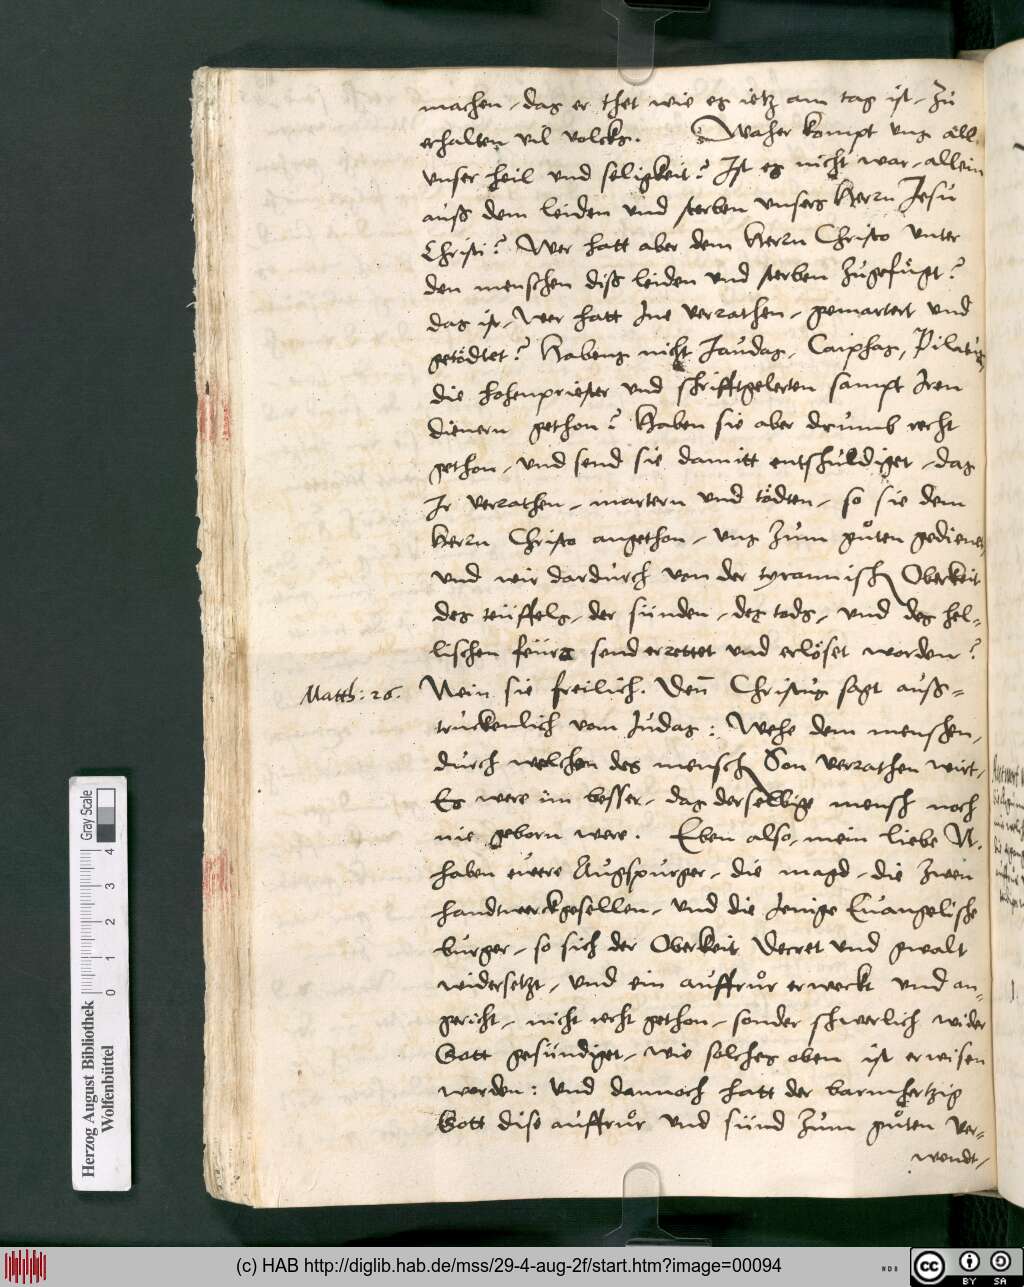 machen, das er thet wie es ietz am tag ist, zu
erhalten vil volcks. Waher kompt vns all
vnser heil vnd seligkeit? Ist es nicht war, allein
auß dem leiden vnd sterben vnsers Herrn Jesu
Christi? Wer hatt aber dem Herrn Christo vnter
den menschen diß leiden vnd sterben zugefügt?
das ist, Wer hatt Jne verrathen, gemartert vnd
getödtet? Habens nicht Judas, Caiphas, Pilatus,
die hohenpriester vnd schrifftgelerten sampt Iren
dienern gethon? Haben sie aber drumb recht
gethon, vnd send sie damitt entschuldiget, das
Ir verrathen, martern vnd tödten, so sie dem
Herrn Christo angethon, vns zum gůten gedienet,
vnd wir dardurch von der tyrannisch Oberkeit
des teüffels, der sünden, des tods, vnd des hel-
lischen feürs send errettet vnd erlöset worden?
Matth: 26. Nein sie freilich. Denn Christus sagt auß-
truckenlich vom Judas: Wehe dem menschen,
durch welchen des mensch Son verrathen wirt,
Es were im besser, das derselbige mensch noch
nie geborn were. Eben also, mein liebe N.
haben euere Augspurger, die magd, die zwen
handtwerckgesellen, vnd die Jenige Euangelische
burger, so sich der Oberkeit Decret vnd gwalt
widersetzt, vnd ein auffrůr erweckt vnd an-
gericht, nicht recht gethon, sonder schwerlich wider
Gott gesündiget, wie solches oben ist erwisen
worden: Vnd dannoch hatt der barmhertzig
Gott dise auffrůr vnd sünd zum gůten ver-
wendt,
Herzog August Bibliothek
Wolfenbüttel
0 1 2 3 4
Gray Scale
(c) HAB http://diglib.hab.de/mss/29-4-aug-2f/start.htm?image=00094
WDB
cc BY SA